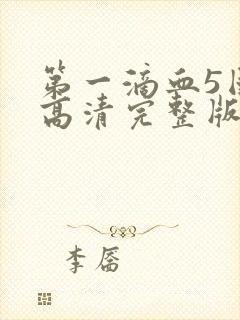 第一滴血5
高清完整版
李磨